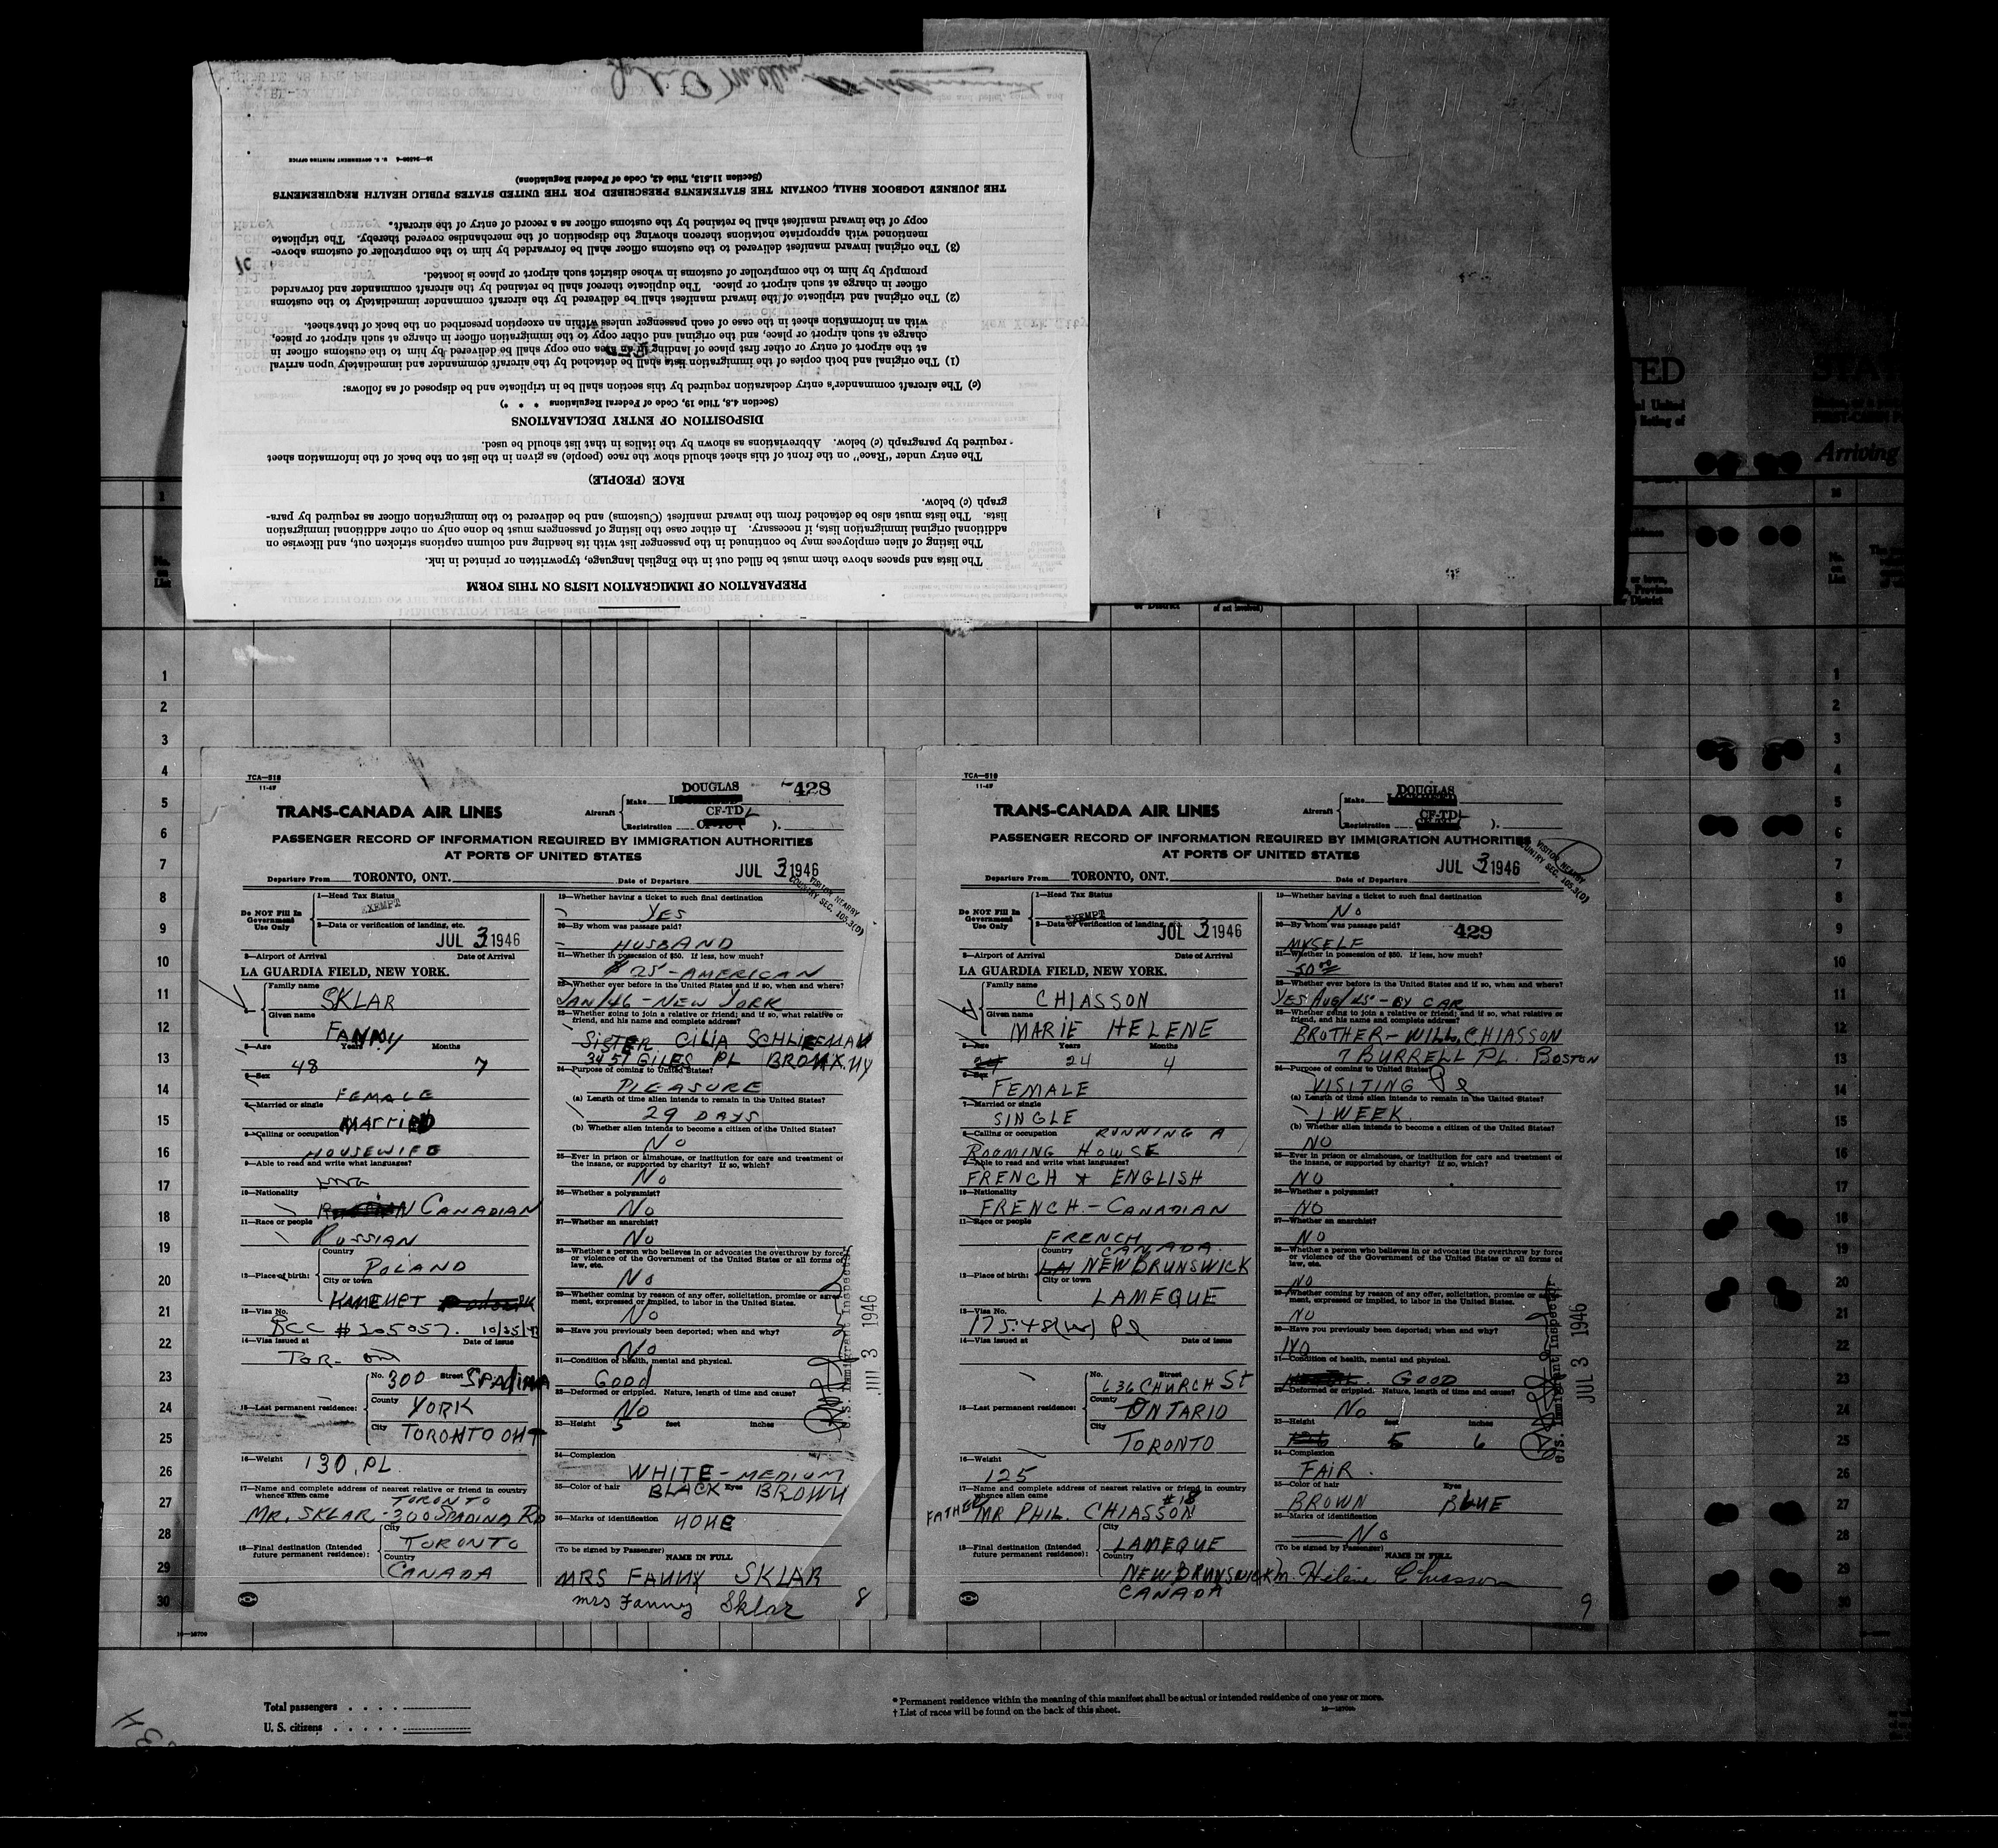 PREPARATION OF IMMIGRATION LISTS ON THIS FORM
The lists and spaces above them must be filled out in the English language, typewritten or printed in ink.
The listing of alien employees may be continued in the passenger list with its heading and column captions stricken out, and likewise on
additional original immigration lists, if necessary. In either case the listing of passengers must be done only on other additional immigration
lists. The lists must also be detached from the inward manifest (Customs) and be delivered to the immigration officer as required by para-
graph (c) below.
RACE (PEOPLE)
The entry under "Race" on the front of this sheet should show the race (people) as given in the list on the back of the information sheet
required by paragraph (c) below. Abbreviations as shown by the italics in that list should be used.
DISPOSITION OF ENTRY DECLARATIONS
(Section 4.8, Title 19, Code of Federal Regulations * * *)
(c) The aircraft commander's entry declaration required by this section shall be in triplicate and be disposed of as follows:
(1) The original and both copies of the immigration lists shall be detached by the aircraft commander and immediately upon arrival
at the airport of entry or other first place of landing in an area one copy shall be delivered by him to the customs officer in
charge at such airport or place, and the original and other copy to the immigration officer in charge at such airport or place,
with an information sheet in the case of each passenger unless within an exception prescribed on the back of that sheet.
(2) The original and triplicate of the inward manifest shall be delivered by the aircraft commander immediately to the customs
officer in charge at such airport or place. The duplicate thereof shall be retained by the aircraft commander and forwarded
promptly by him to the comptroller of customs in whose district such airport or place is located.
(3) The original inward manifest delivered to the customs officer shall be forwarded by him to the comptroller of customs above-
mentioned with appropriate notations thereon showing the disposition of the merchandise covered thereby. The triplicate
copy of the inward manifest shall be retained by the customs officer as a record of entry of the aircraft.
THE JOURNEY LOGBOOK SHALL CONTAIN THE STATEMENTS PRESCRIBED FOR THE UNITED STATES PUBLIC HEALTH REQUIREMENTS
(Section 11.513, Title 42, Code of Federal Regulations)
U. S. GOVERNMENT PRINTING OFFICE
TED
Arriving
No.
on
List
1
2
3
4
5
6
7
8
9
10
11
12
13
14
15
16
17
18
19
20
21
22
23
24
25
26
27
28
29
30
TCA—518
11-45
TRANS-CANADA AIR LINES
Aircraft
Make
DOUGLAS
428
Registration
CF-TDL
).
PASSENGER RECORD OF INFORMATION REQUIRED BY IMMIGRATION AUTHORITIES
AT PORTS OF UNITED STATES
Departure From TORONTO, ONT. Date of Departure JUL 3 1946
VISITOR NEARBY
COUNTRY SEC. 105.3(0)
Do NOT Fill In
Government
Use Only
1—Head Tax Status
EXEMPT
2—Data or verification of landing, etc.
JUL 3 1946
3—Airport of Arrival Date of Arrival
LA GUARDIA FIELD, NEW YORK.
Family name
SKLAR
Given name
FANNY
5—Age Years Months
48 7
6—Sex
FEMALE
7—Married or single
MARRIED
8—Calling or occupation
HOUSEWIFE
9—Able to read and write what languages?
10—Nationality
CANADIAN
11—Race or people
RUSSIAN
12—Place of birth:
Country
POLAND
City or town
KAMENET
13—Visa No.
BCC # 205057.
14—Visa issued at Date of issue
TOR- Ont
15—Last permanent residence:
No. 300 Street SPADINA
County YORK
City TORONTO ONT
16—Weight 130.PL
17—Name and complete address of nearest relative or friend in country
whence alien came
TORONTO
MR. SKLAR - 300 SPADINA RD
18—Final destination (Intended
future permanent residence):
City
TORONTO
Country
CANADA
19—Whether having a ticket to such final destination
YES
20—By whom was passage paid?
HUSBAND
21—Whether in possession of $50. If less, how much?
$25 - AMERICAN
22—Whether ever before in the United States and if so, when and where?
JAN/46 - NEW YORK
23—Whether going to join a relative or friend; and if so, what relative or
friend, and his name and complete address?
SISTER CILIA SCHLIEFMAN
3451 GILES PL BRONX.NY
24—Purpose of coming to United States?
PLEASURE
(a) Length of time alien intends to remain in the United States?
29 DAYS
(b) Whether alien intends to become a citizen of the United States?
NO
25—Ever in prison or almshouse, or institution for care and treatment of
the insane, or supported by charity? If so, which?
NO
26—Whether a polygamist?
NO
27—Whether an anarchist?
NO
28—Whether a person who believes in or advocates the overthrow by force
or violence of the Government of the United States or all forms of
law, etc.
NO
29—Whether coming by reason of any offer, solicitation, promise or agree-
ment, expressed or implied, to labor in the United States.
NO
30—Have you previously been deported; when and why?
NO
31—Condition of health, mental and physical.
GOOD
32—Deformed or crippled. Nature, length of time and cause?
NO
33—Height 5 feet inches
34—Complexion
WHITE - MEDIUM
35—Color of hair BLACK Eyes BROWN
36—Marks of identification NONE
(To be signed by Passenger)
NAME IN FULL
MRS FANNY SKLAR
mrs Fanny Sklar
8
U.S. Immigrant Inspector
JUL 3 1946
TCA—518
11-45
TRANS-CANADA AIR LINES
Aircraft
Make
DOUGLAS
Registration
CF-TDL
).
PASSENGER RECORD OF INFORMATION REQUIRED BY IMMIGRATION AUTHORITIES
AT PORTS OF UNITED STATES
Departure From TORONTO, ONT. Date of Departure JUL 3 1946
VISITOR NEARBY
COUNTRY SEC. 105.3(0)
Do NOT Fill In
Government
Use Only
1—Head Tax Status
EXEMPT
2—Data or verification of landing, etc.
JUL 3 1946
3—Airport of Arrival Date of Arrival
LA GUARDIA FIELD, NEW YORK.
Family name
CHIASSON
Given name
MARIE HELENE
5—Age Years Months
24 4
6—Sex
FEMALE
7—Married or single
SINGLE
8—Calling or occupation RUNNING A
ROOMING HOUSE
9—Able to read and write what languages?
FRENCH & ENGLISH
10—Nationality
FRENCH - CANADIAN
11—Race or people
FRENCH
12—Place of birth:
Country
CANADA.
NEW BRUNSWICK
City or town
LAMEQUE
13—Visa No.
14—Visa issued at Date of issue
15—Last permanent residence:
No. Street
636 CHURCH St
County
ONTARIO
City
TORONTO
16—Weight
125
17—Name and complete address of nearest relative or friend in country
whence alien came
#18
FATHER MR PHIL. CHIASSON
18—Final destination (Intended
future permanent residence):
City
LAMEQUE
Country
NEW BRUNSWICK
CANADA
19—Whether having a ticket to such final destination
NO
20—By whom was passage paid?
429
MYSELF
21—Whether in possession of $50. If less, how much?
50.00
22—Whether ever before in the United States and if so, when and where?
YES AUG/45 - BY CAR
23—Whether going to join a relative or friend; and if so, what relative or
friend, and his name and complete address?
BROTHER - WILL. CHIASSON
7 BURRELL PL. BOSTON
24—Purpose of coming to United States?
VISITING
(a) Length of time alien intends to remain in the United States?
1 WEEK
(b) Whether alien intends to become a citizen of the United States?
NO
25—Ever in prison or almshouse, or institution for care and treatment of
the insane, or supported by charity? If so, which?
NO
26—Whether a polygamist?
NO
27—Whether an anarchist?
NO
28—Whether a person who believes in or advocates the overthrow by force
or violence of the Government of the United States or all forms of
law, etc.
NO
29—Whether coming by reason of any offer, solicitation, promise or agree-
ment, expressed or implied, to labor in the United States.
NO
30—Have you previously been deported; when and why?
NO
31—Condition of health, mental and physical.
GOOD
32—Deformed or crippled. Nature, length of time and cause?
NO
33—Height feet inches
5 6
34—Complexion
FAIR.
35—Color of hair Eyes
BROWN BLUE
36—Marks of identification
NO
(To be signed by Passenger)
NAME IN FULL
M. Hélène Chiasson
9
U.S. Immigrant Inspector
JUL 3 1946
Total passengers
U. S. citizens
* Permanent residence within the meaning of this manifest shall be actual or intended residence of one year or more.
† List of races will be found on the back of this sheet.